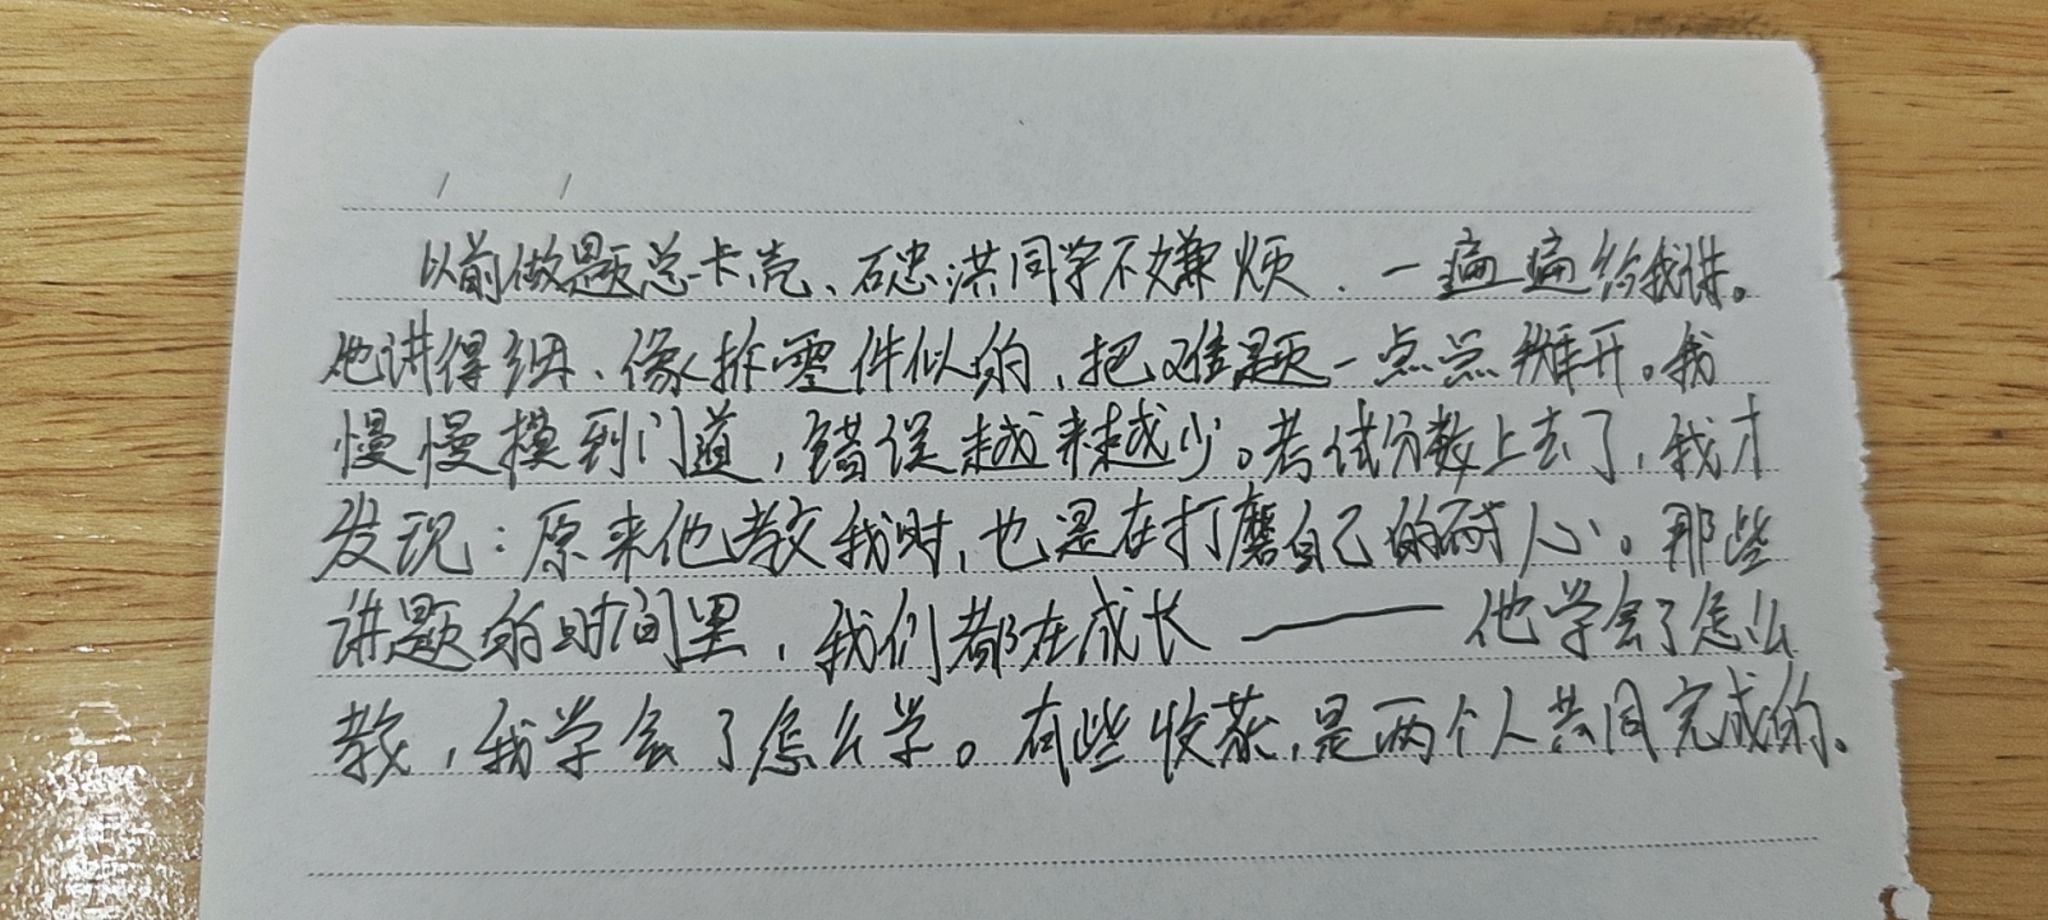 以前做题总卡壳、硕洪同学不嫌烦、一遍遍给我讲。
他讲得细、像拆零件似的,把难题一点点掰开。我
慢慢摸到门道,错误越来越少。考试分数上去了,我才
发现:原来他教我时,也是在打磨自己的耐心。那些
讲题的时间里,我们都在成长——他学会了怎么
教,我学会了怎么学。有些收获,是两个人共同完成的。